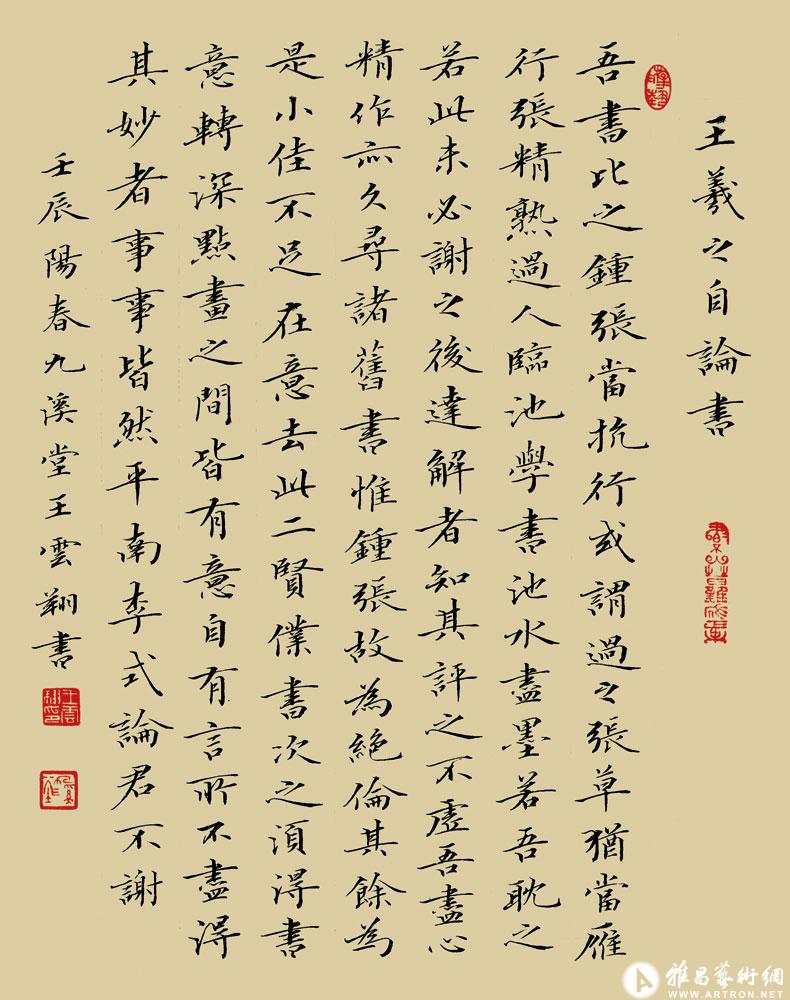 王羲之自論書
吾書比之鍾張當抗行或謂過之張草猶當雁
行張精熟過人臨池學書池水盡墨若吾耽之
若此未必謝之後達解者知其評之不虛吾盡心
精作亦久尋諸舊書惟鍾張故為絕倫其餘為
是小佳不足在意去此二賢僕書次之須得書
意轉深點畫之間皆有意自有言所不盡得
其妙者事事皆然平南李式論君不謝
壬辰陽春九溪堂王雲翔書
雅昌藝術網
WWW.ARTRON.NET